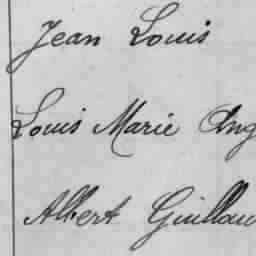 Jean Louis
Louis Marie Ang
Albert Guillau